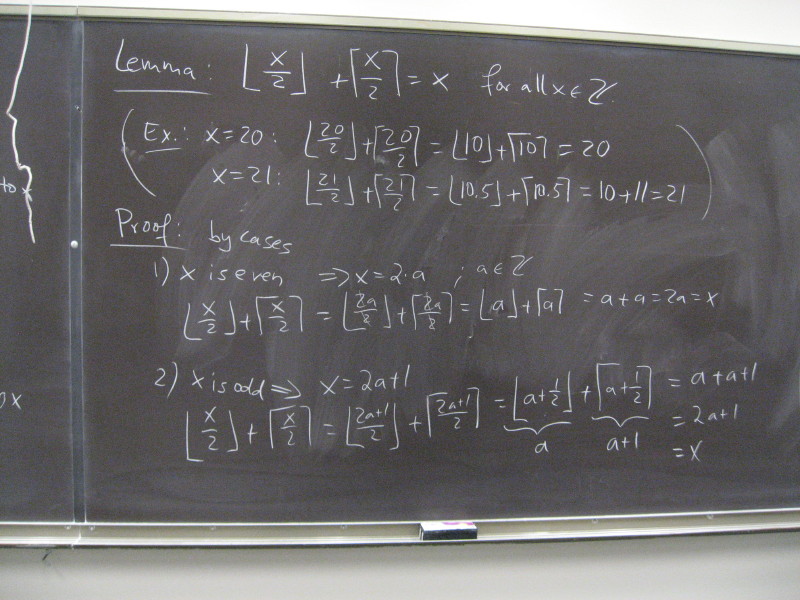 Lemma: ⌊x/2⌋ + ⌈x/2⌉ = x for all x ∈ ℤ.
(Ex.: x=20: ⌊20/2⌋+⌈20/2⌉ = ⌊10⌋+⌈10⌉ = 20
x=21: ⌊21/2⌋+⌈21/2⌉ = ⌊10.5⌋+⌈10.5⌉ = 10+11=21)
Proof: by cases
1) x is even ⇒ x=2·a ; a∈ℤ
⌊x/2⌋+⌈x/2⌉ = ⌊2a/2⌋+⌈2a/2⌉ = ⌊a⌋+⌈a⌉ = a+a=2a=x
2) x is odd ⇒ x=2a+1
⌊x/2⌋+⌈x/2⌉ = ⌊2a+1/2⌋ + ⌈2a+1/2⌉ = ⌊a+1/2⌋ + ⌈a+1/2⌉ = a+a+1
a a+1 = 2a+1
= x
to x
0x